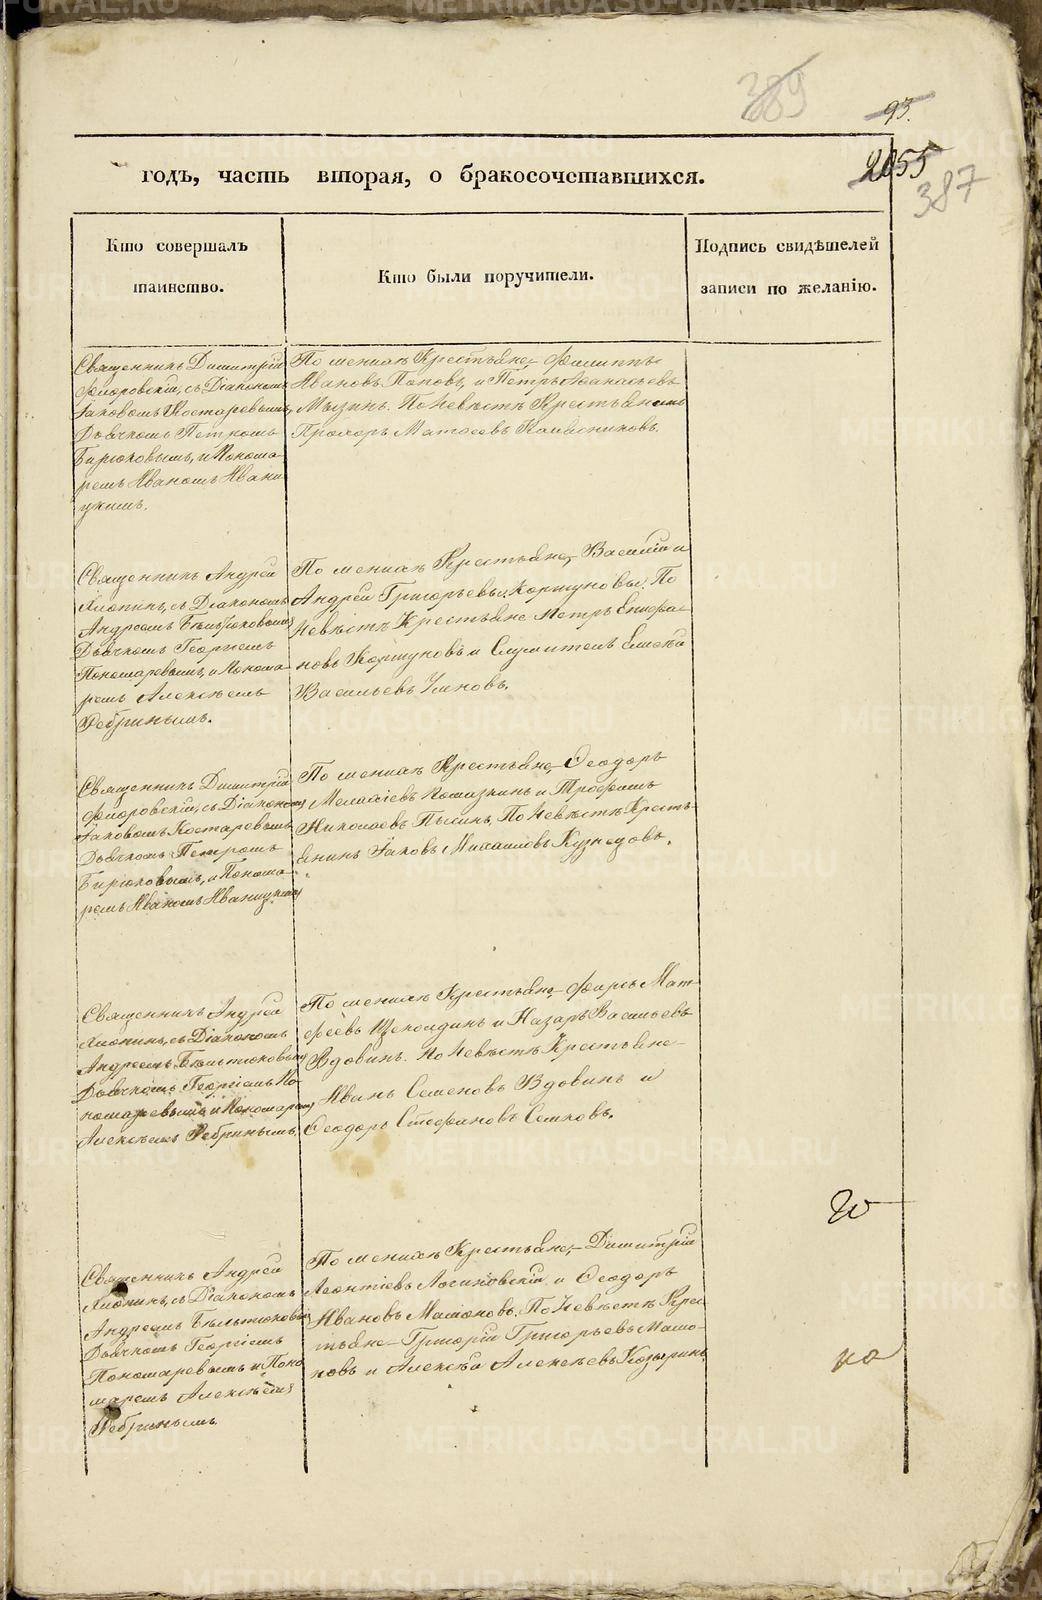 389
93.
2055
387
годъ, часть вторая, о бракосочетавшихся.
Кто совершалъ
таинство.
Кто были поручители.
Подпись свидѣтелей
записи по желанію.
Священникъ Димитрій
Флоровскій, съ Діакономъ
Іаковомъ Костаревымъ,
Дьячкомъ Петромъ
Бирюковымъ, и Понома-
ремъ Иваномъ Ивани-
цкимъ.
По женихѣ Крестьяне Филиппъ
Ивановъ Поповъ, и Петръ Аѳанасьевъ
Мызинъ. По Невѣстѣ Крестьянинъ
Прохоръ Матвеевъ
Священникъ Андрей
съ Діакономъ
Андреемъ
Дьячкомъ Георгіемъ
Пономаревымъ, и Понома-
ремъ Алексѣемъ
Ребринымъ.
По женихѣ Крестьяне, Василій и
Андрей Григорьевы Коршуновы; По
Невѣстѣ Крестьяне Петръ
новъ Коршуновъ и Служитель
Васильевъ Умновъ.
Священникъ Димитрій
Флоровскій, съ Діакономъ
Іаковомъ Костаревымъ
Дьячкомъ Петромъ
Бирюковымъ, и Понома-
ремъ Иваномъ Иваницкимъ
По женихѣ Крестьяне, Ѳеодоръ
и Трофимъ
Николаевъ По Невѣстѣ Кресть-
янинъ Іаковъ Михаиловъ Кузнецовъ.
Священникъ Андрей
съ Діакономъ
Андреемъ
Дьячкомъ Георгіемъ По-
номаревымъ и Пономаремъ
Алексѣемъ Ребринымъ.
По женихѣ Крестьяне, Фирсъ Мат-
феевъ и Назаръ Васильевъ
Вдовинъ. По Невѣстѣ Крестьяне
Иванъ Семеновъ Вдовинъ и
Ѳеодоръ Стефановъ
Священникъ Андрей
съ Діакономъ
Андреемъ
Дьячкомъ Георгіемъ
Пономаревымъ и Поно-
маремъ Алексѣемъ
Ребринымъ
По женихѣ Крестьяне, Димитрій
Леонтіевъ Логиновскій и Ѳеодоръ
Ивановъ По Невѣстѣ Крес-
тьяне Григорій Григорьевъ
новъ и Алексѣй Алексѣевъ Козыринъ.